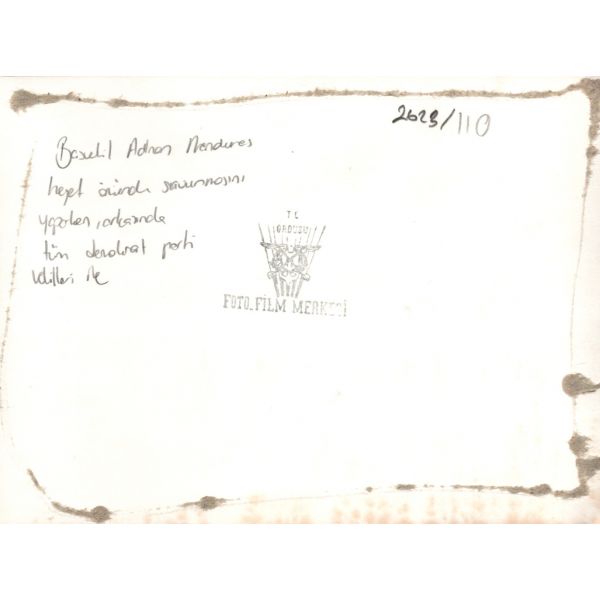 2623/110
Başvekil Adnan Menderes
heyet önünde savunmasını
yaparken, arkasında
tüm demokrat parti
vekilleri ile
T C
ORDUSU
FOTO-FİLM MERKEZİ